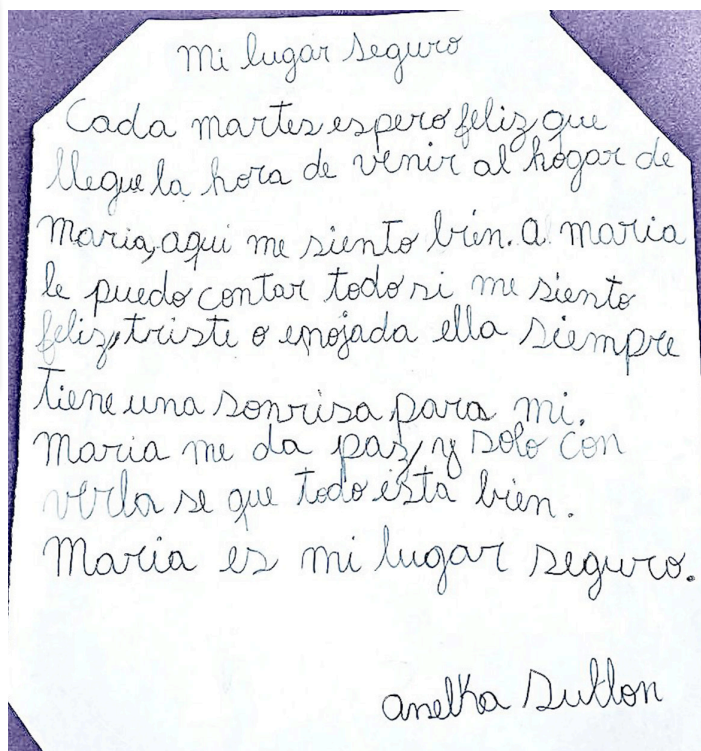 mi lugar seguro
Cada martes espero feliz que
llegue la hora de venir al hogar de
Maria, aqui me siento bien. a maria
le puedo contar todo si me siento
feliz, triste o enojada ella siempre
tiene una sonrisa para mi.
Maria me da paz, y solo con
verla se que todo esta bien.
Maria es mi lugar seguro.
anelka Sullon